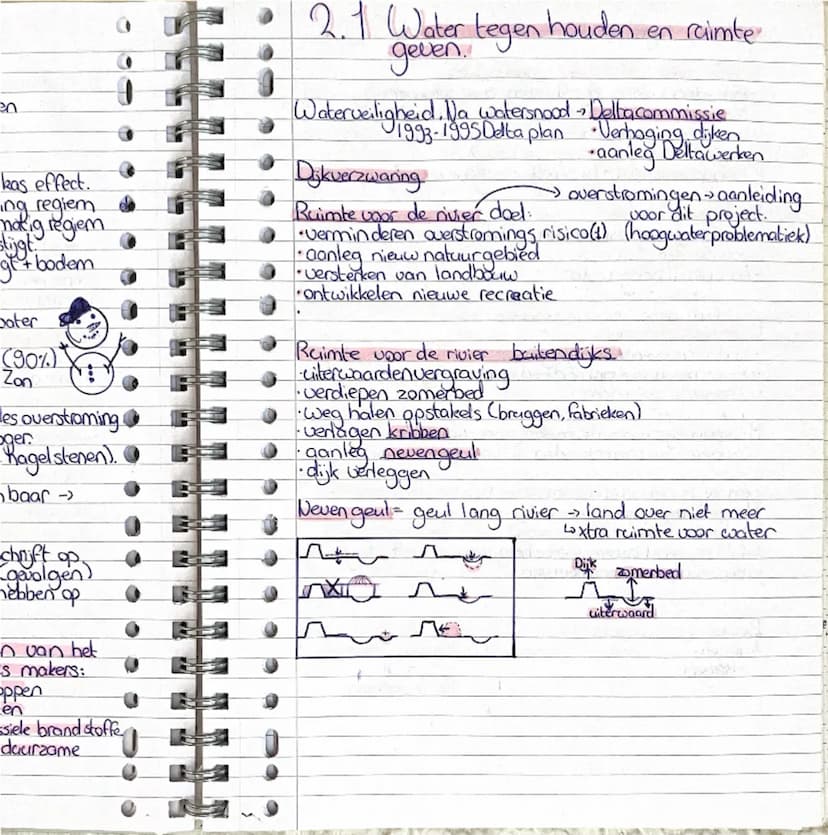 en
kas effect.
ing regiem
matig regiem
stijgt.
gt + bodem
water
(90%)
Zon
les overstroming
oger.
Hagelstenen).
baar ->
chrift op
(gevolgen)
hebben op
n van het
s makers:
oppen
en
ssiele brandstoffe
duurzame
2.1 Water tegen houden en ruimte
geven.
Waterveiligheid. Na watersnood → Deltacommissie
1993-1995 Deltaplan • Verhoging dijken
• aanleg Deltawerken
Dijkverzwaring
overstromingen → aanleiding
Ruimte voor de rivier doel: voor dit project.
• verminderen overstromings risico(1) (hoogwaterproblematiek)
• aanleg nieuw natuurgebied
• versterken van landbouw
• ontwikkelen nieuwe recreatie
•
Ruimte voor de rivier buitendijks.
• uiterwaardenvergraving
• verdiepen zomerbed
• weg halen opstakels (bruggen, fabrieken)
• verlagen kribben
• aanleg nevengeul
• dijk verleggen
Nevengeul = geul lang rivier → land over niet meer
↳ xtra ruimte voor water
Dijk
zomerbed
uiterwaard